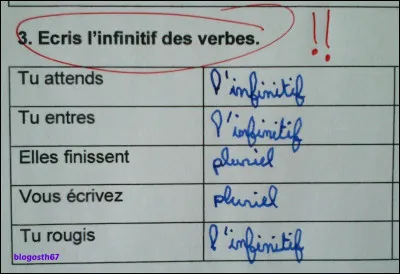 3. Ecris l'infinitif des verbes. !!
Tu attends l'infinitif
Tu entres l'infinitif
Elles finissent pluriel
Vous écrivez pluriel
Tu rougis l'infinitif
blogosth67